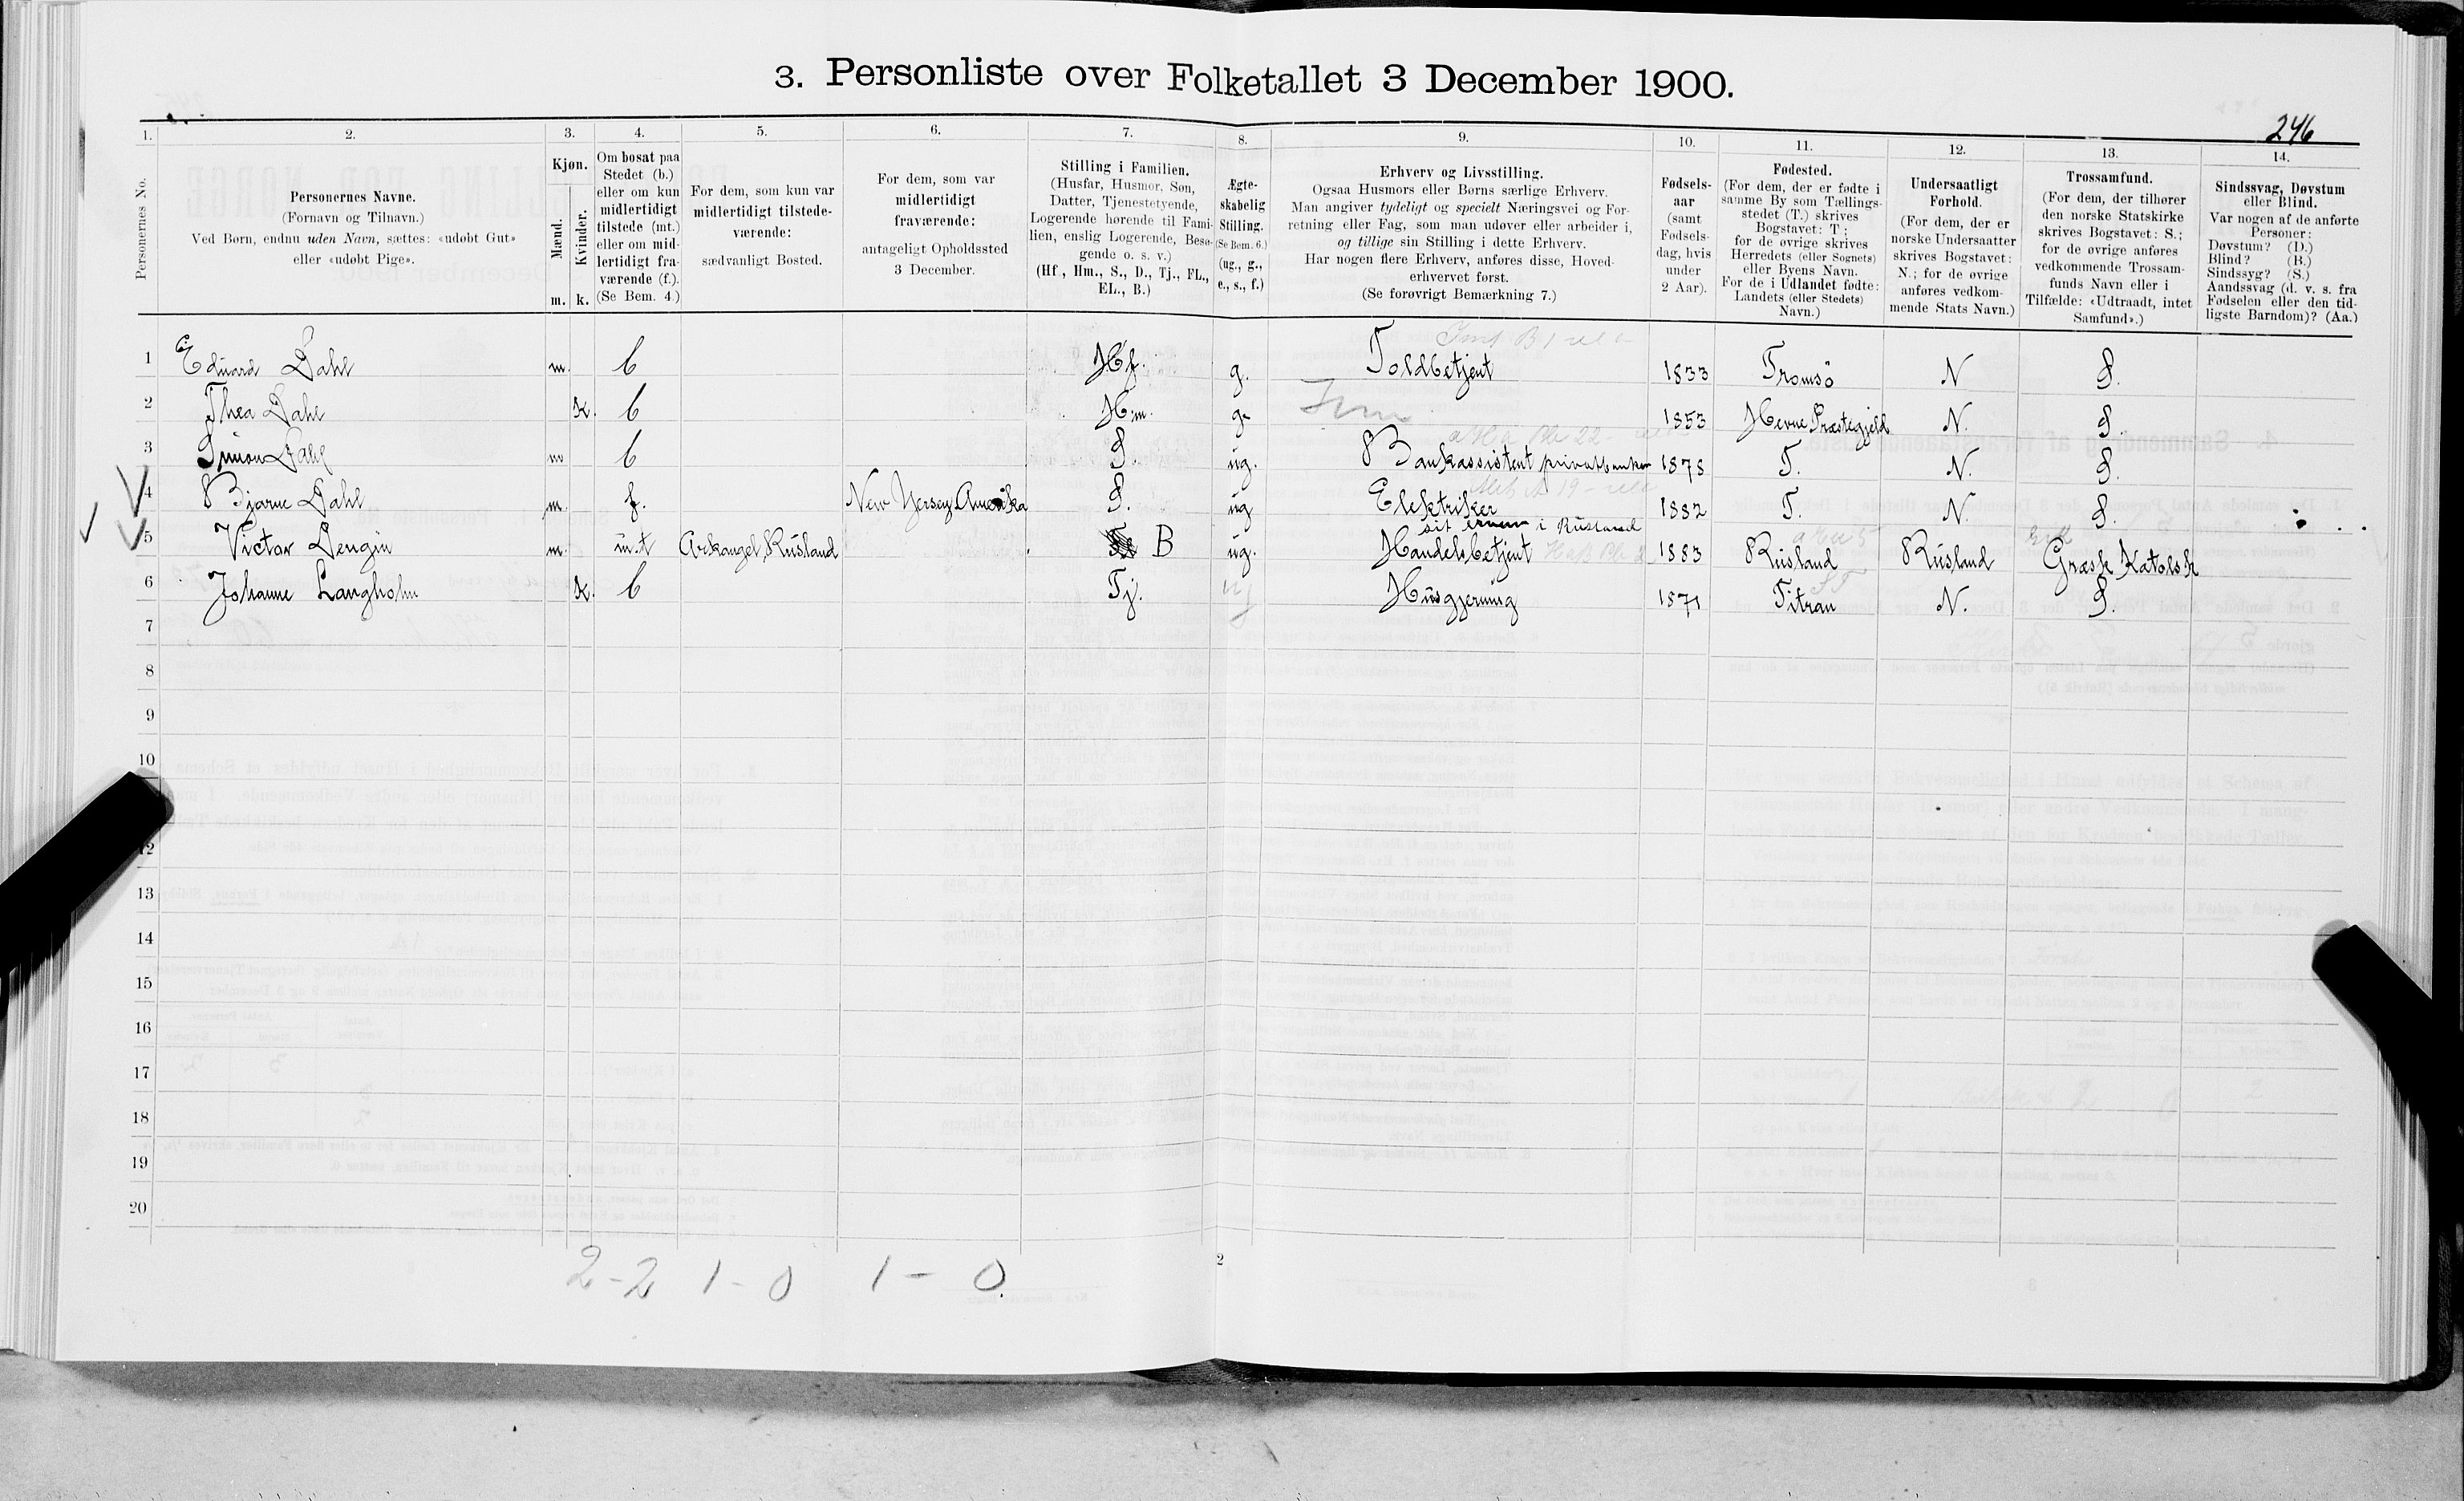 3. Personliste over Folketallet 3 December 1900.
246
1. 2. 3. 4. 5. 6. 7. 8. 9. 10. 11. 12. 13. 14.
Personernes No.
Personernes Navne.
(Fornavn og Tilnavn.)
Ved Børn, endnu uden Navn, sættes: «udøbt Gut»
eller «udøbt Pige».
Kjøn.
Mænd. Kvinder.
m. k.
Om bosat paa
Stedet (b.)
eller om kun
midlertidigt
tilstede (mt.)
eller om mid-
lertidigt fra-
værende (f.).
(Se Bem. 4.)
For dem, som kun var
midlertidigt tilstede-
værende:
sædvanligt Bosted.
For dem, som var
midlertidigt
fraværende:
antageligt Opholdssted
3 December.
Stilling i Familien.
(Husfar, Husmor, Søn,
Datter, Tjenestetyende,
Logerende hørende til Fami-
lien, enslig Logerende, Besø-
gende o. s. v.)
(Hf., Hm., S., D., Tj., FL.,
EL., B.)
Ægte-
skabelig
Stilling.
(Se Bem. 6.)
(ug., g.,
e., s., f.)
Erhverv og Livsstilling.
Ogsaa Husmors eller Børns særlige Erhverv.
Man angiver tydeligt og specielt Næringsvei og For-
retning eller Fag, som man udøver eller arbeider i,
og tillige sin Stilling i dette Erhverv.
Har nogen flere Erhverv, anføres disse, Hoved-
erhvervet først.
(Se forøvrigt Bemærkning 7.)
Fødsels-
aar
(samt
Fødsels-
dag, hvis
under
2 Aar).
Fødested.
(For dem, der er fødte i
samme By som Tællings-
stedet (T.) skrives
Bogstavet: T;
for de øvrige skrives
Herredets (eller Sognets)
eller Byens Navn.
For de i Udlandet fødte:
Landets (eller Stedets)
Navn.)
Undersaatligt
Forhold.
(For dem, der er
norske Undersaatter
skrives Bogstavet:
N.; for de øvrige
anføres vedkom-
mende Stats Navn.)
Trossamfund.
(For dem, der tilhører
den norske Statskirke
skrives Bogstavet: S.;
for de øvrige anføres
vedkommende Trossam-
funds Navn eller i
Tilfælde: «Udtraadt, intet
Samfund».)
Sindssvag, Døvstum
eller Blind.
Var nogen af de anførte
Personer:
Døvstum? (D.)
Blind? (B.)
Sindssyg? (S.)
Aandssvag (d. v. s. fra
Fødselen eller den tid-
ligste Barndom)? (Aa.)
1 Eduard Dahl m. b Hf. g. Toldbetjent 1833 Tromsö N S.
2 Thea Dahl k. b Hm. g. 1853 Hevne Præstegjeld N. S.
3 Simon Dahl m b S. ug. Bankassistent privatbanken 1878 T. N. S.
4 Bjarne Dahl m. f. New Yersey Amerika S. ug Elektriker 1882 T. N. S.
i Rusland
5 Victor Dengin m. m.t Arkangel, Rusland B ug. Handelsbetjent 1883 Rusland Rusland Græsk Katolsk
6 Johanne Langholm k. b Tj. Husgjerning 1871 Titran N. S.
7
8
9
10
12
13
14
15
16
17
18
19
20
2-2 1-0 1-0.
2